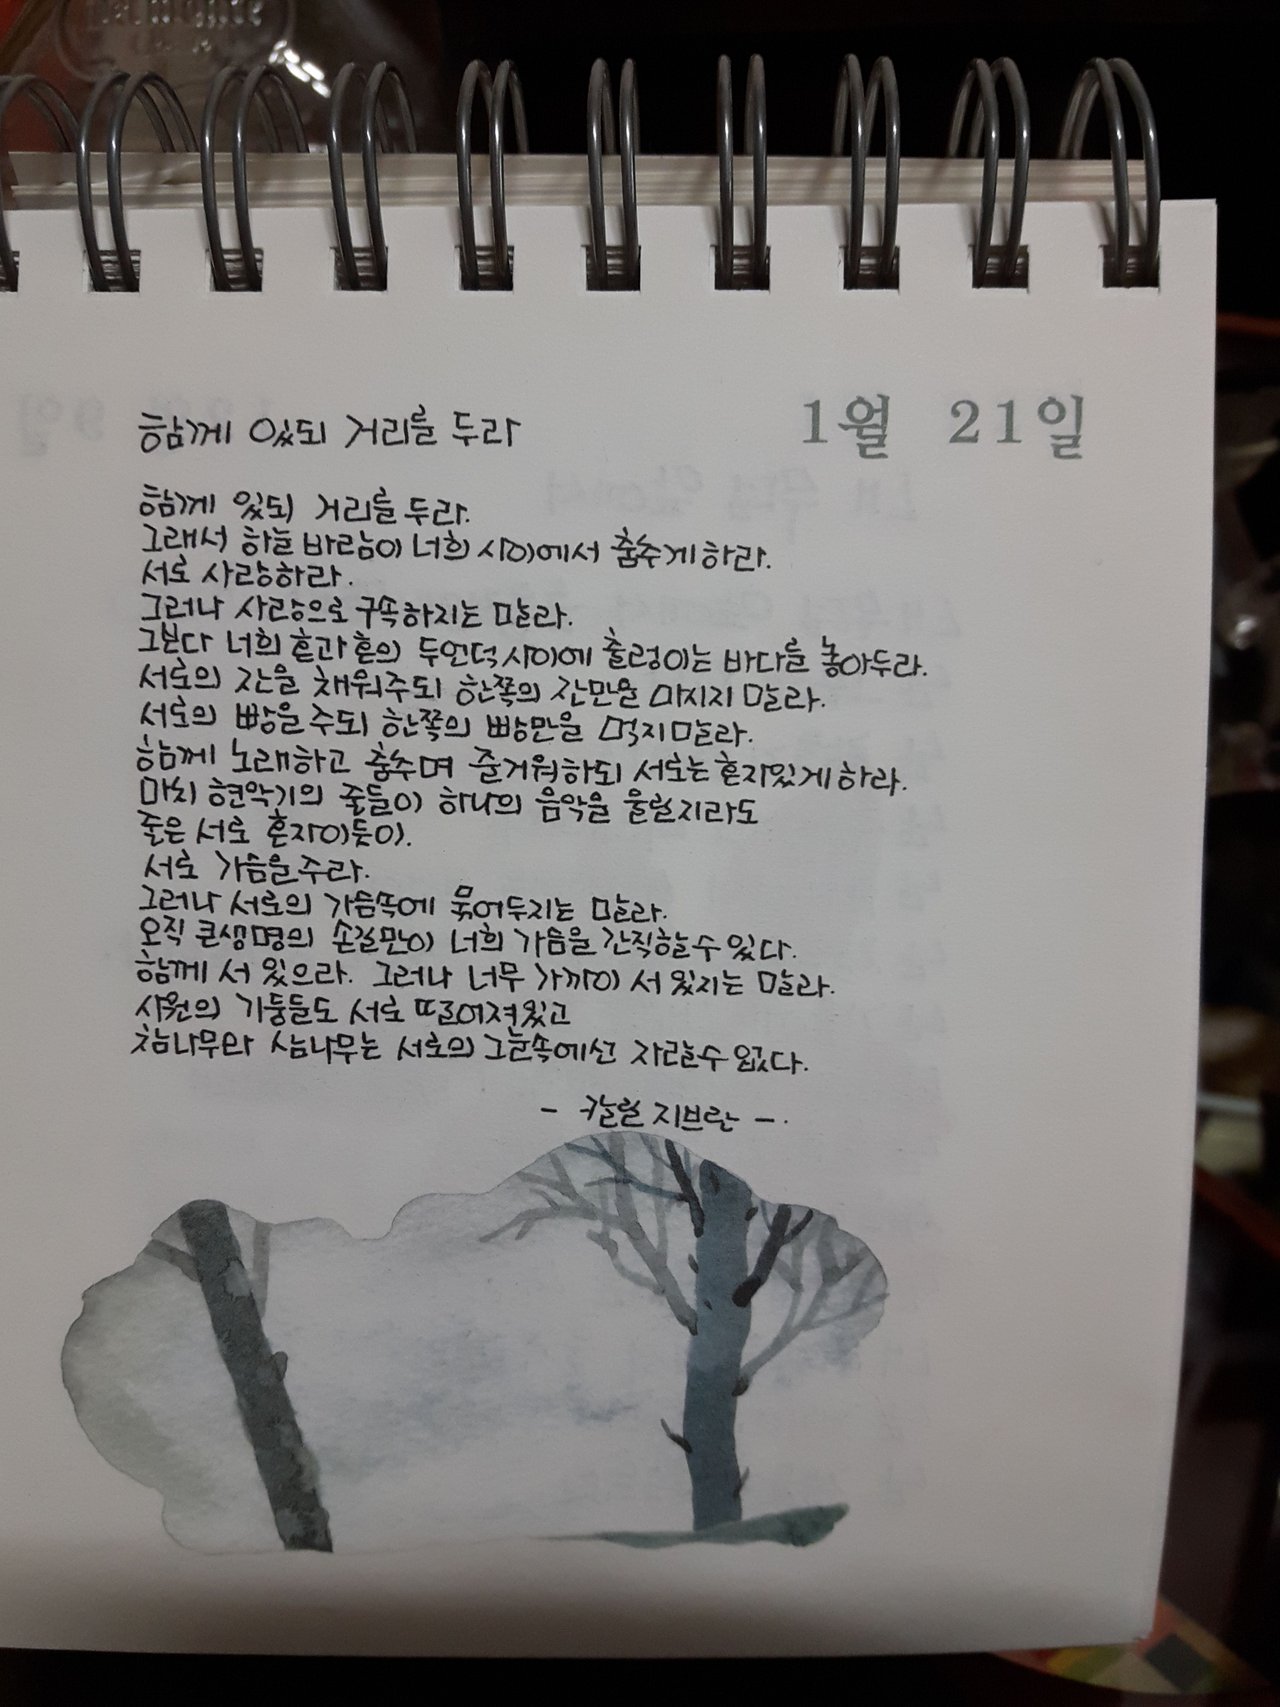 1월 21일
함께 있되 거리를 두라
함께 있되 거리를 두라.
그래서 하늘 바람이 너희 사이에서 춤추게 하라.
서로 사랑하라.
그러나 사랑으로 구속하지는 말라.
그보다 너희 혼과 혼의 두언덕 사이에 출렁이는 바다를 놓아두라.
서로의 잔을 채워주되 한쪽의 잔만을 마시지 말라.
서로의 빵을 주되 한쪽의 빵만을 먹지말라.
함께 노래하고 춤추며 즐거워하되 서로는 혼자있게 하라.
마치 현악기의 줄들이 하나의 음악을 울릴지라도
줄은 서로 혼자이듯이.
서로 가슴을 주라.
그러나 서로의 가슴속에 묶어두지는 말라.
오직 큰생명의 손길만이 너희 가슴을 간직할수 있다.
함께 서 있으라. 그러나 너무 가까이 서 있지는 말라.
사원의 기둥들도 서로 떨어져있고
참나무와 삼나무는 서로의 그늘속에선 자랄수 없다.
- 칼릴 지브란 -.